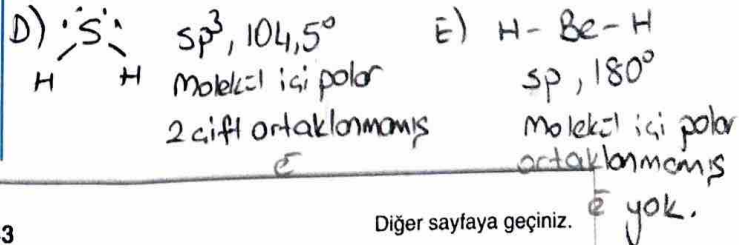 D) :S: sp³, 104,5°
H H Molekül içi polar
2 çift ortaklanmamış
e⁻
E) H - Be - H
sp, 180°
Molekül içi polar
ortaklanmamış
e⁻ yok.
3
Diğer sayfaya geçiniz.